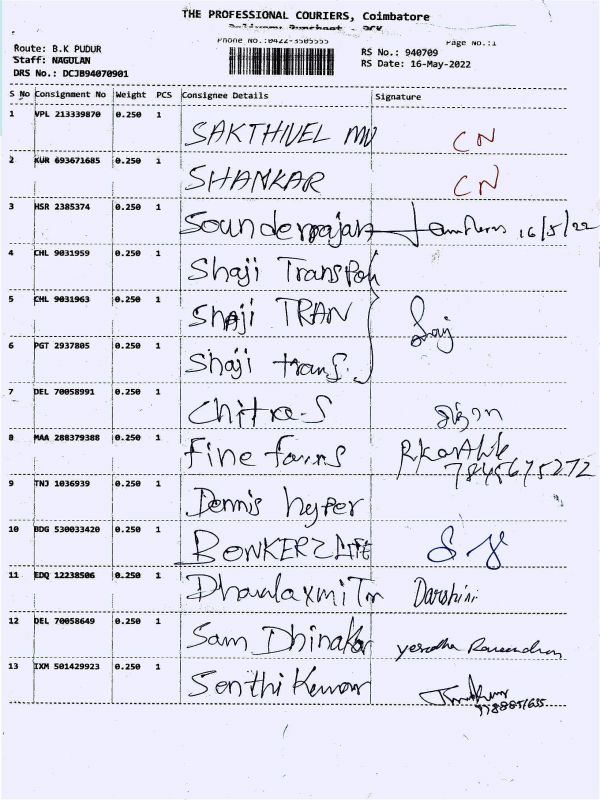 THE PROFESSIONAL COURIERS, Coimbatore
Phone No.:0422-3505555
Page No.:1
Route: B.K PUDUR
Staff: NAGULAN
DRS No.: DCJB94070901
RS No.: 940709
RS Date: 16-May-2022
S No Consignment No Weight PCS Consignee Details Signature
1 VPL 213339870 0.250 1 SAKTHIVEL CN
2 KUR 693671685 0.250 1 SHANKAR CN
3 HSR 2385374 0.250 1 Sounderrajan 16/5/22
4 CHL 9031959 0.250 1 Shaji
5 CHL 9031963 0.250 1 Shaji TRAN Shaj
6 PGT 2937805 0.250 1 Shaji trans.
7 DEL 70058991 0.250 1 Chitra-S
8 MAA 288379388 0.250 1 Fine farms 7845675272
9 TNJ 1036939 0.250 1 Dennis hyper
10 BDG 530033420 0.250 1 BONKERZ LIFE
11 EDQ 12238506 0.250 1 Dhanlaxmi Darshini
12 DEL 70058649 0.250 1 Sam Dhinakar
13 IXM 501429923 0.250 1 Senthil Kumar